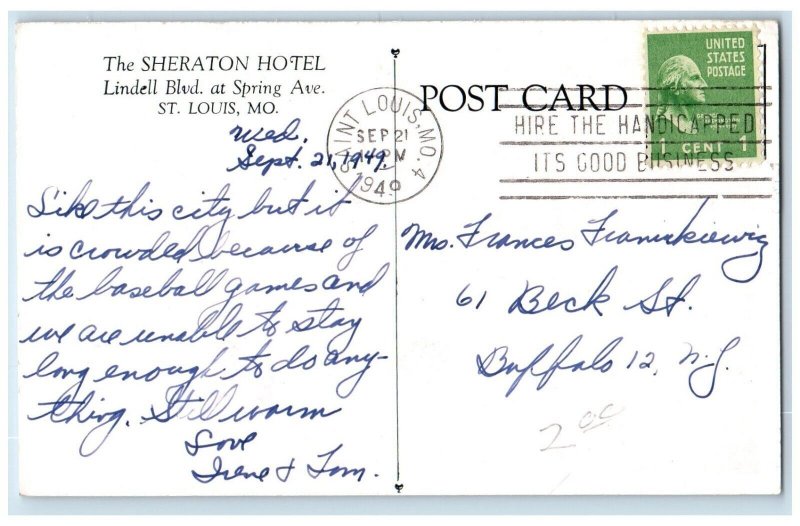 The SHERATON HOTEL
Lindell Blvd. at Spring Ave.
ST. LOUIS, MO.
Wed.
Sept. 21, 1949.
Like this city but it
is crowded because of
the baseball games and
we are unable to stay
long enough to do any-
thing. Still warm
Love
Irene & Tom.
POST CARD
SAINT LOUIS, MO. 4
SEP 21
PM
1949
HIRE THE HANDICAPPED
ITS GOOD BUSINESS
UNITED
STATES
POSTAGE
WASHINGTON
1 CENT 1
Ms. Frances Franickiewig
61 Beck St.
Buffalo 12, N.Y.
2 00